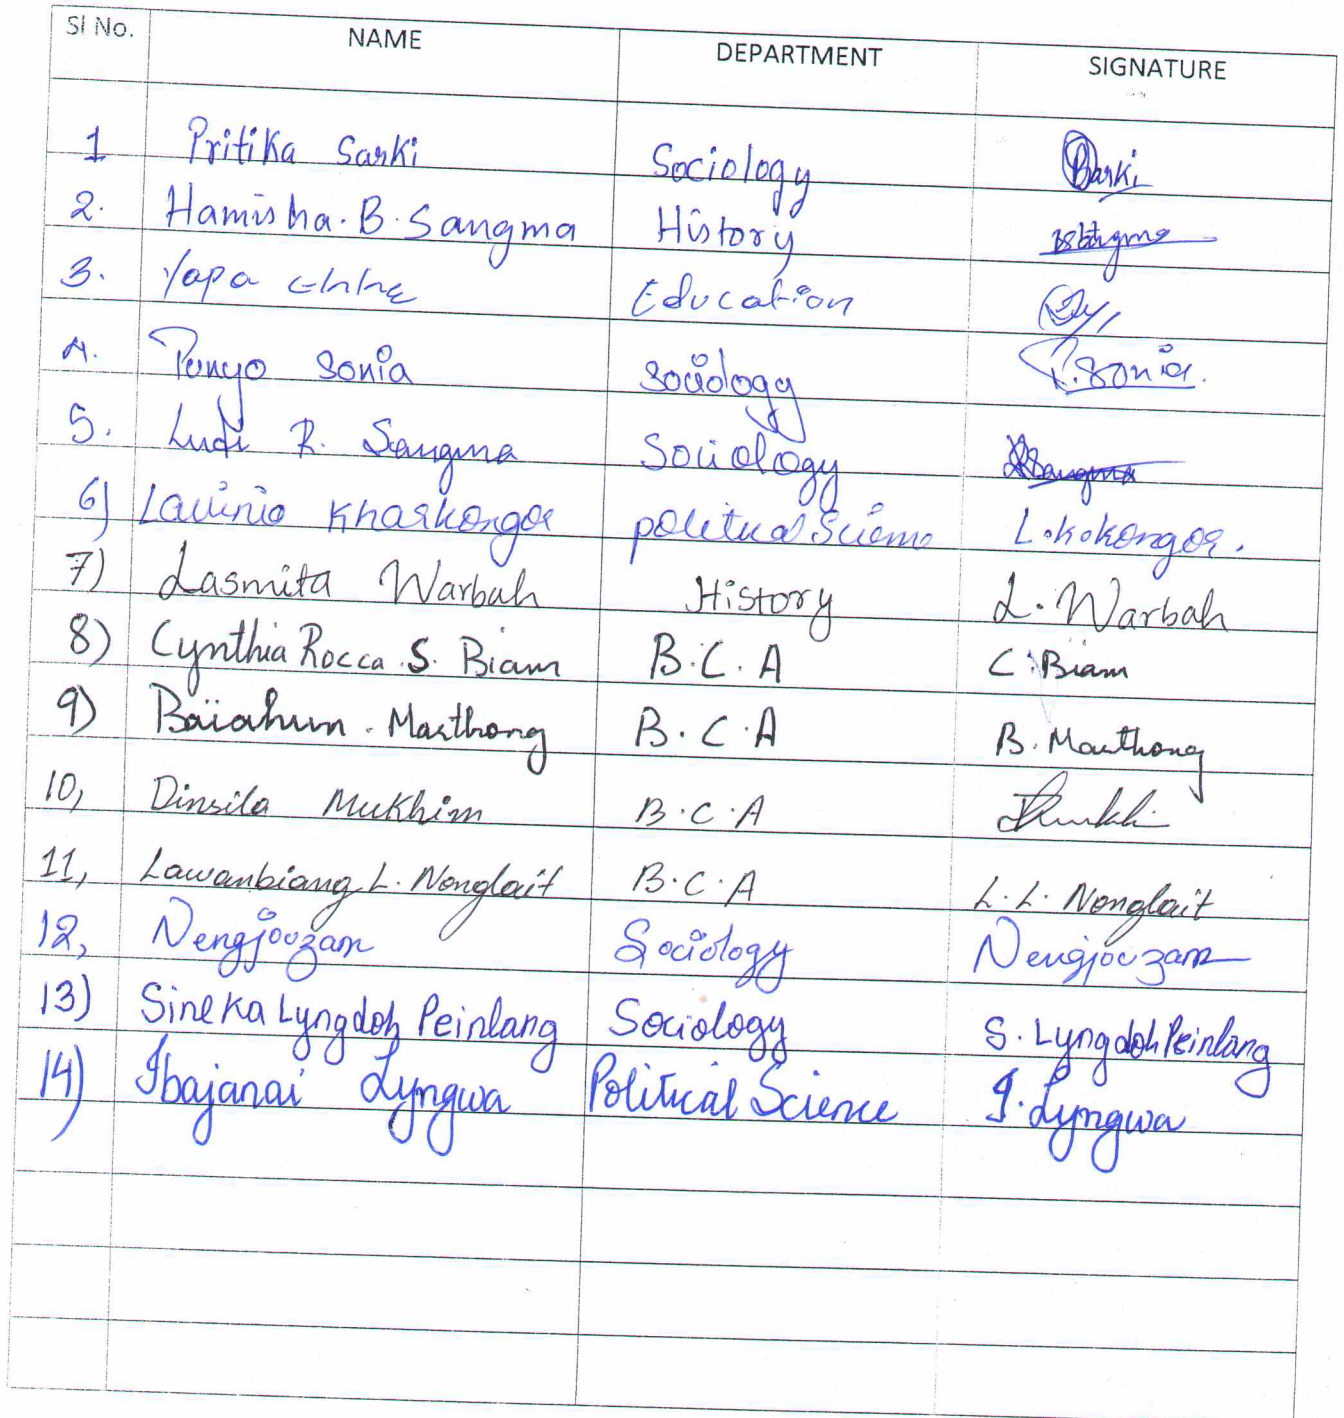 Sl No. NAME DEPARTMENT SIGNATURE
1 Pritika Sarki Sociology Sarki
2. Hamisha. B. Sangma History
3. Yapa Education
4. Ponyo Sonia Sociology P. Sonia.
5. Ludi R. Sangma Sociology
6) Lavinia Kharkongor political Science L.K.Kongor.
7) Lasmita Warbah History L. Warbah
8) Cynthia Rocca S. Biam B.C.A C. Biam
9) Baiahun. Marthong B.C.A B. Marthong
10, Dinsila Mukhim B.C.A
11, Lawanbiang L. Nonglait B.C.A L.L. Nonglait
12, Nengjouzam Sociology Nengjouzam
13) Sineka Lyngdoh Peinlang Sociology S. Lyngdoh Peinlang
14) Ibajanai Lyngwa Political Science I. Lyngwa